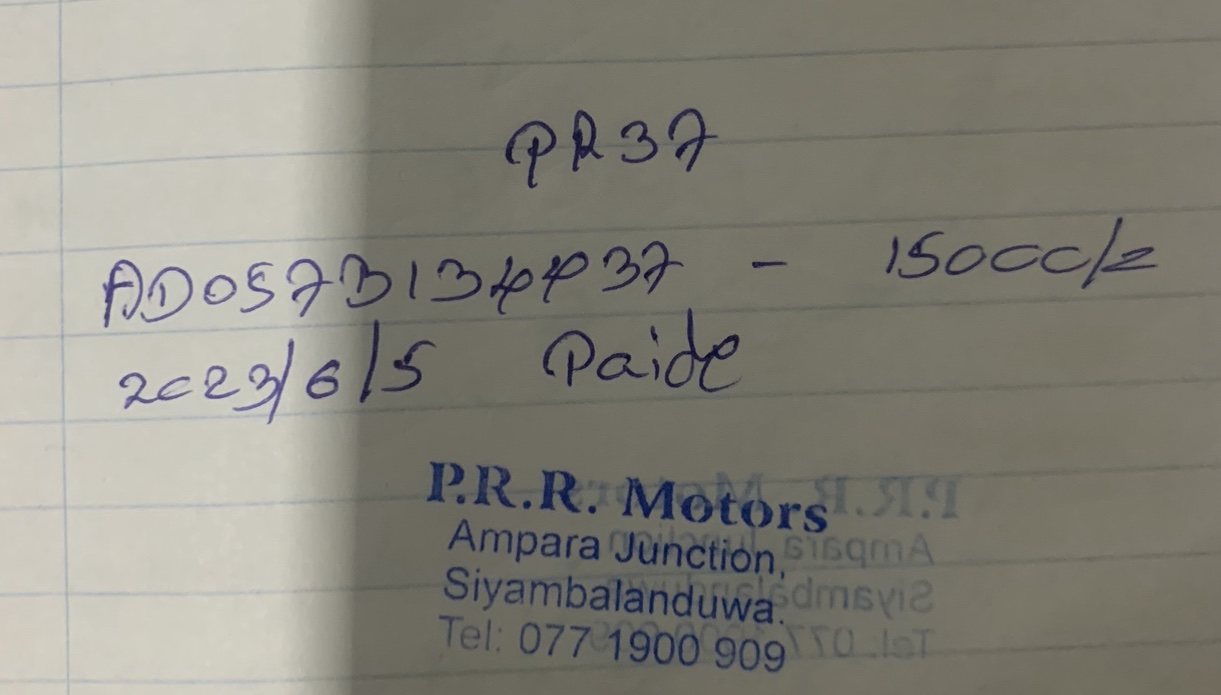 PR37
AD057B134437 - 15000/=
2023/6/5 Paide
P.R.R. Motors
Ampara Junction,
Siyambalanduwa.
Tel: 077 1900 909